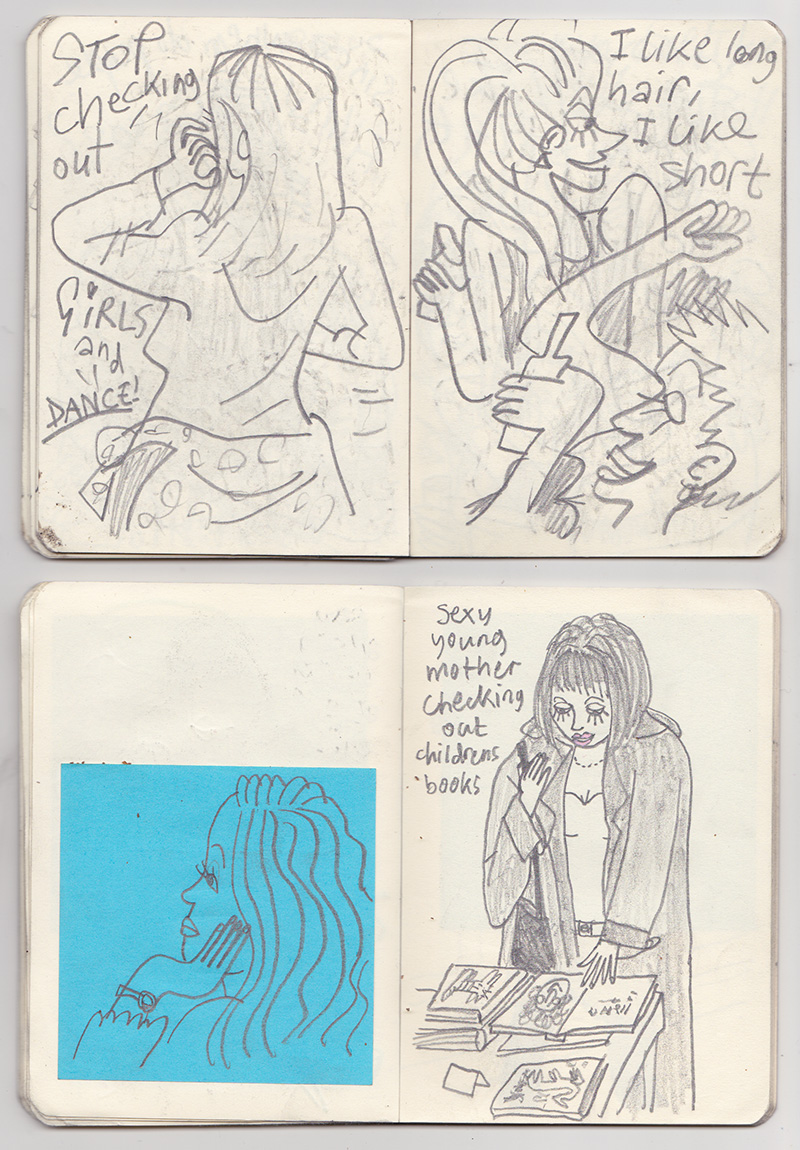 STOP
checking
out
GiRLS
and
DANCE!
I like long
hair,
I like
short
sexy
young
mother
checking
out
childrens
books